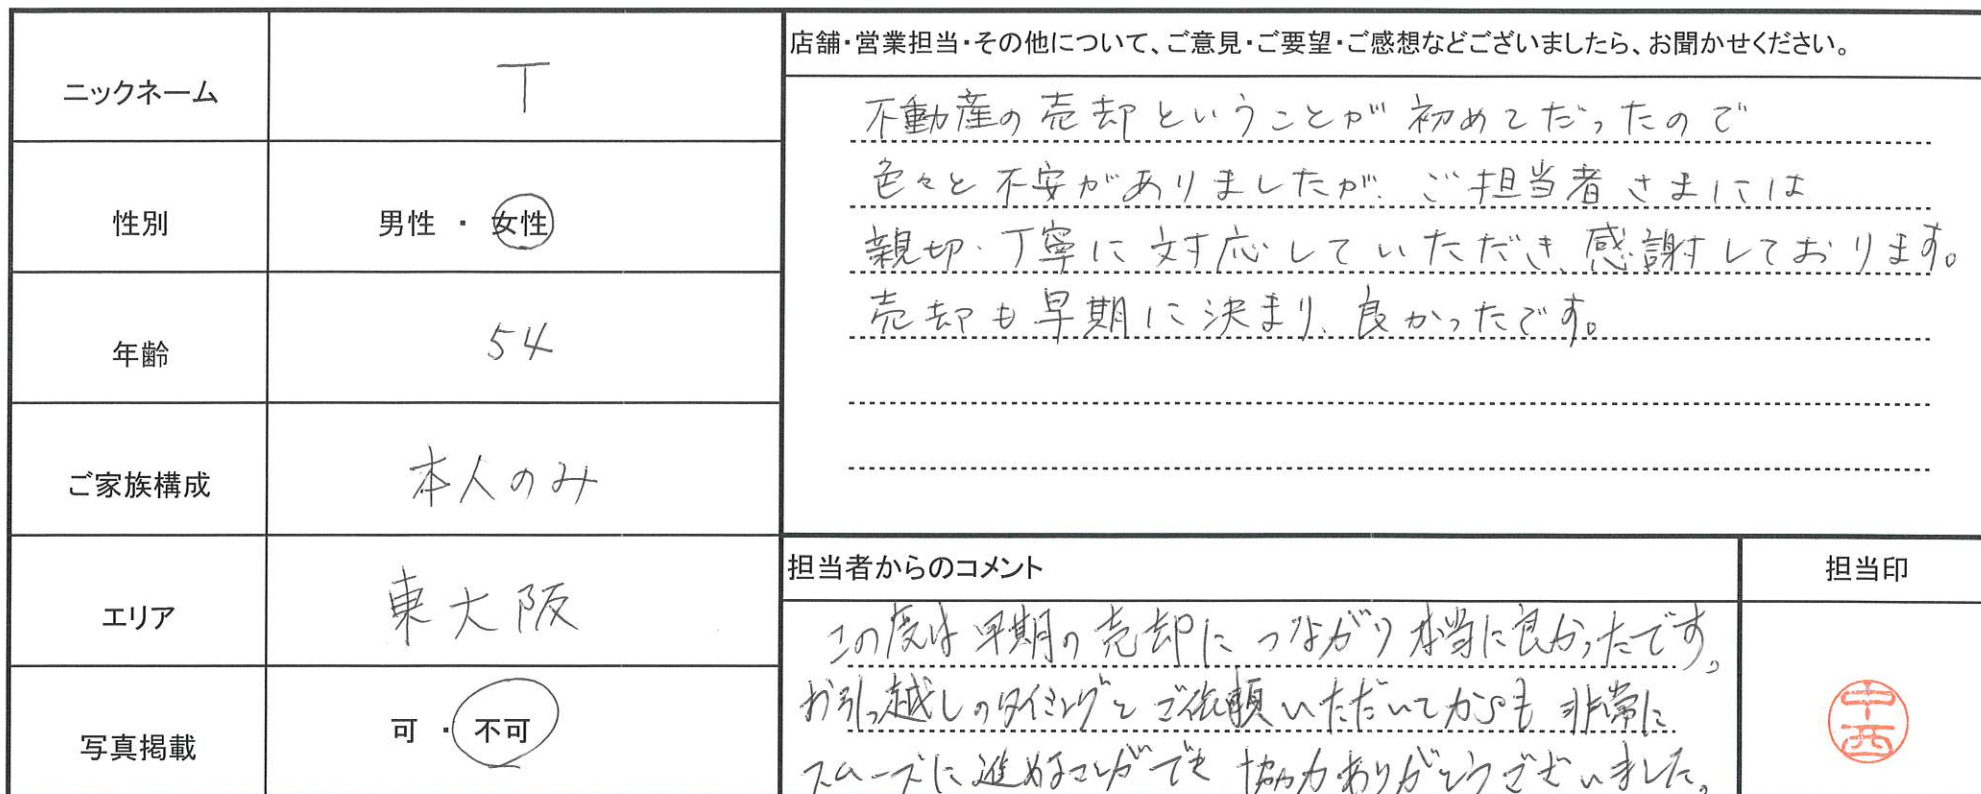 ニックネーム
T
性別
男性 ・ 女性
年齢
54
ご家族構成
本人のみ
エリア
東大阪
写真掲載
可 ・ 不可
店舗・営業担当・その他について、ご意見・ご要望・ご感想などございましたら、お聞かせください。
不動産の売却ということが初めてだったので
色々と不安がありましたが、ご担当者さまには
親切・丁寧に対応していただき、感謝しております。
売却も早期に決まり、良かったです。
担当者からのコメント
この度は早期の売却につながり本当に良かったです。
お引っ越しのタイミングとご依頼いただいてからも非常に
スムーズに進めることができ協力ありがとうございました。
担当印
中西